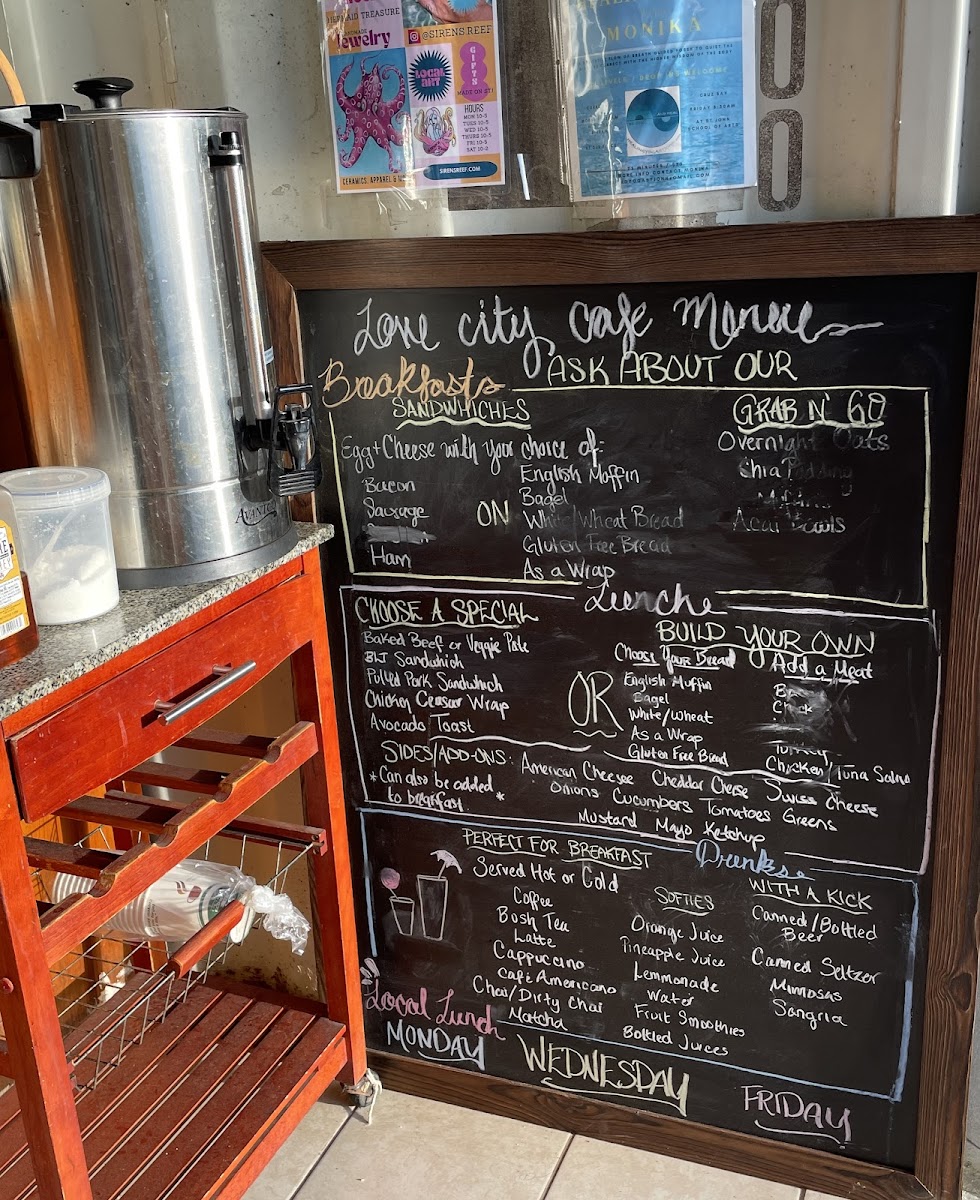 MERMAID TREASURE
Jewelry
@SIRENS REEF
LOCAL ART
GIFTS
MADE ON STJ
HOURS
MON 10-5
TUES 10-5
WED 10-5
THURS 10-5
FRI 10-5
SAT 10-2
CERAMICS, APPAREL &
SIRENSREEF.COM
MONIKA
CRUZ BAY
AT ST JOHN
SCHOOL OF ARTS
AVANTCO
Love City Cafe Menu
Breakfasts
ASK ABOUT OUR
SANDWHICHES
Egg + Cheese with your choice of:
Bacon
Sausage
Ham
ON
English Muffin
Bagel
White/Wheat Bread
Gluten Free Bread
As a Wrap
GRAB N' GO
Overnight Oats
Chia Pudding
Muffins
Acai Bowls
Lunche
CHOOSE A SPECIAL
Baked Beef or Veggie Pate
BLT Sandwhich
Pulled Pork Sandwhich
Chicken Ceasar Wrap
Avocado Toast
OR
BUILD YOUR OWN
Choose Your Bread
English Muffin
Bagel
White/Wheat
As a Wrap
Gluten Free Bread
Add a Meat
Turkey
Chicken/Tuna Salad
SIDES/ADD-ONS:
*Can also be added
to breakfast*
American Cheese Cheddar Cheese Swiss Cheese
Onions Cucumbers Tomatoes Greens
Mustard Mayo Ketchup
Drinks
PERFECT FOR BREAKFAST
Served Hot or Cold
Coffee
Bush Tea
Latte
Cappuccino
Café Americano
Chai/Dirty Chai
Matcha
SOFTIES
Orange Juice
Pineapple Juice
Lemmonade
Water
Fruit Smoothies
Bottled Juices
WITH A KICK
Canned/Bottled
Beer
Canned Seltzer
Mimosas
Sangria
Local Lunch
MONDAY
WEDNESDAY
FRIDAY